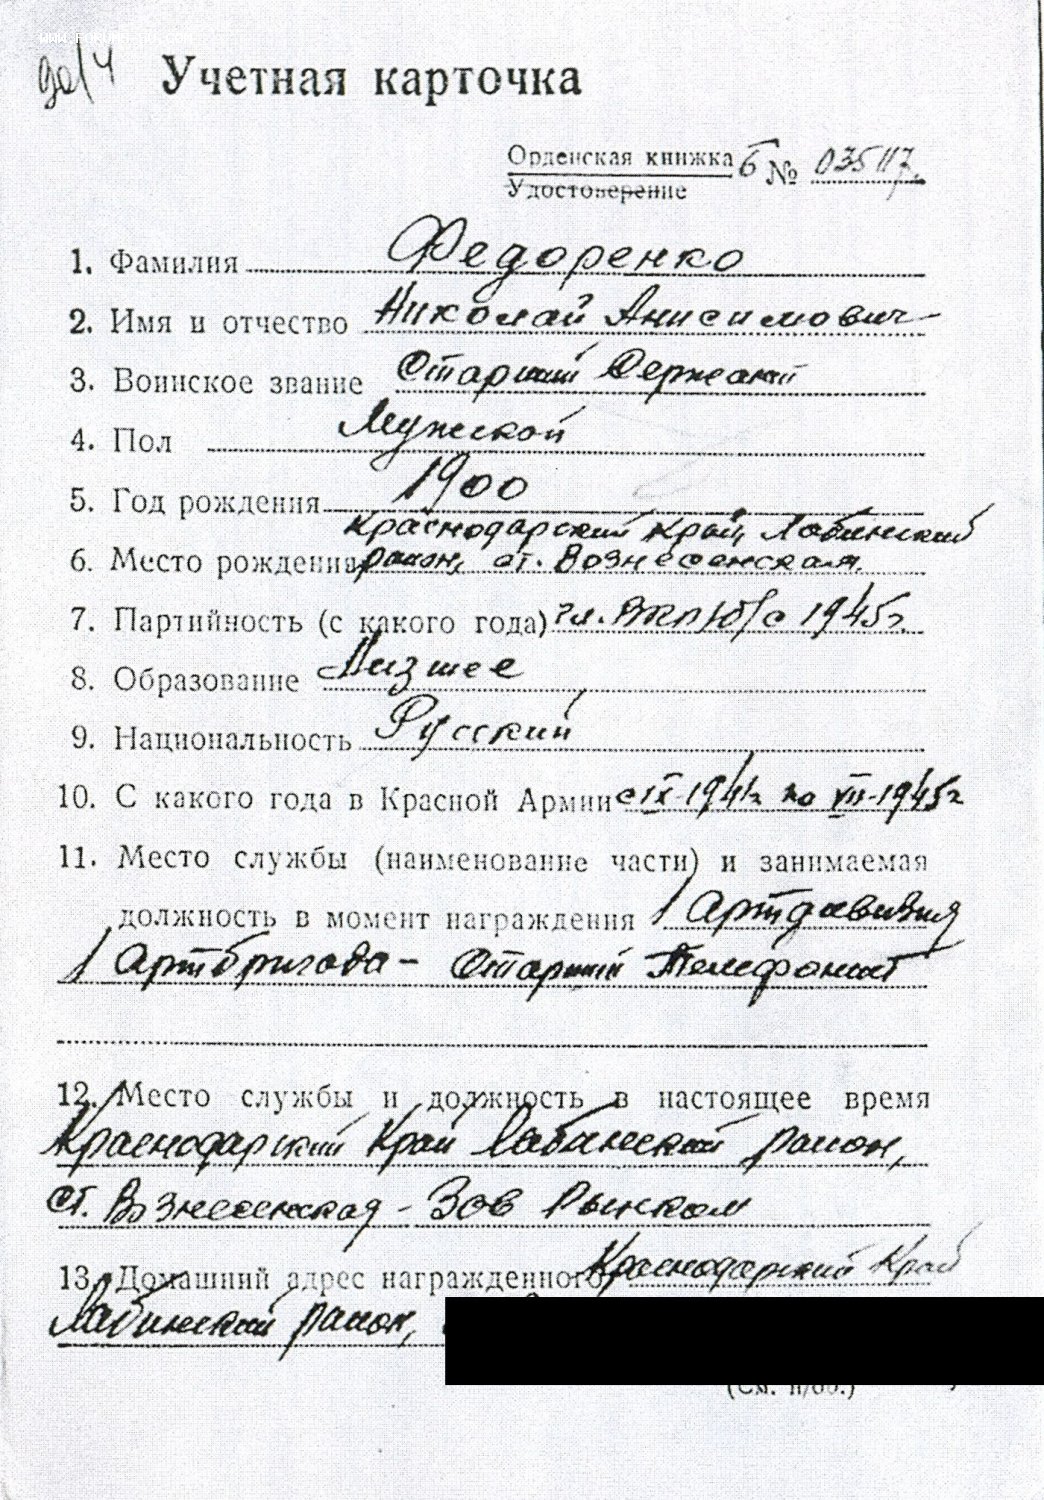 Учетная карточка
Орденская книжка Б № 035117.
Удостоверение
1. Фамилия Федоренко
2. Имя и отчество Николай Анисимович
3. Воинское звание Старший Сержант
4. Пол Мужской
5. Год рождения 1900
Краснодарский край, Лабинский
6. Место рождения район, ст. Вознесенская.
7. Партийность (с какого года) чл. ВКП/б/ с 1945г.
8. Образование Низшее
9. Национальность Русский
10. С какого года в Красной Армии с IX-1941г по VII-1945г
11. Место службы (наименование части) и занимаемая
должность в момент награждения 1 Артдивизия
1 Артбригада – Старший Телефонист
12. Место службы и должность в настоящее время
Краснодарский Край Лабинский район,
ст. Вознесенская – Зав Рынком
13. Домашний адрес награжденного Краснодарский Край
Лабинский район,
(См. н/об.)